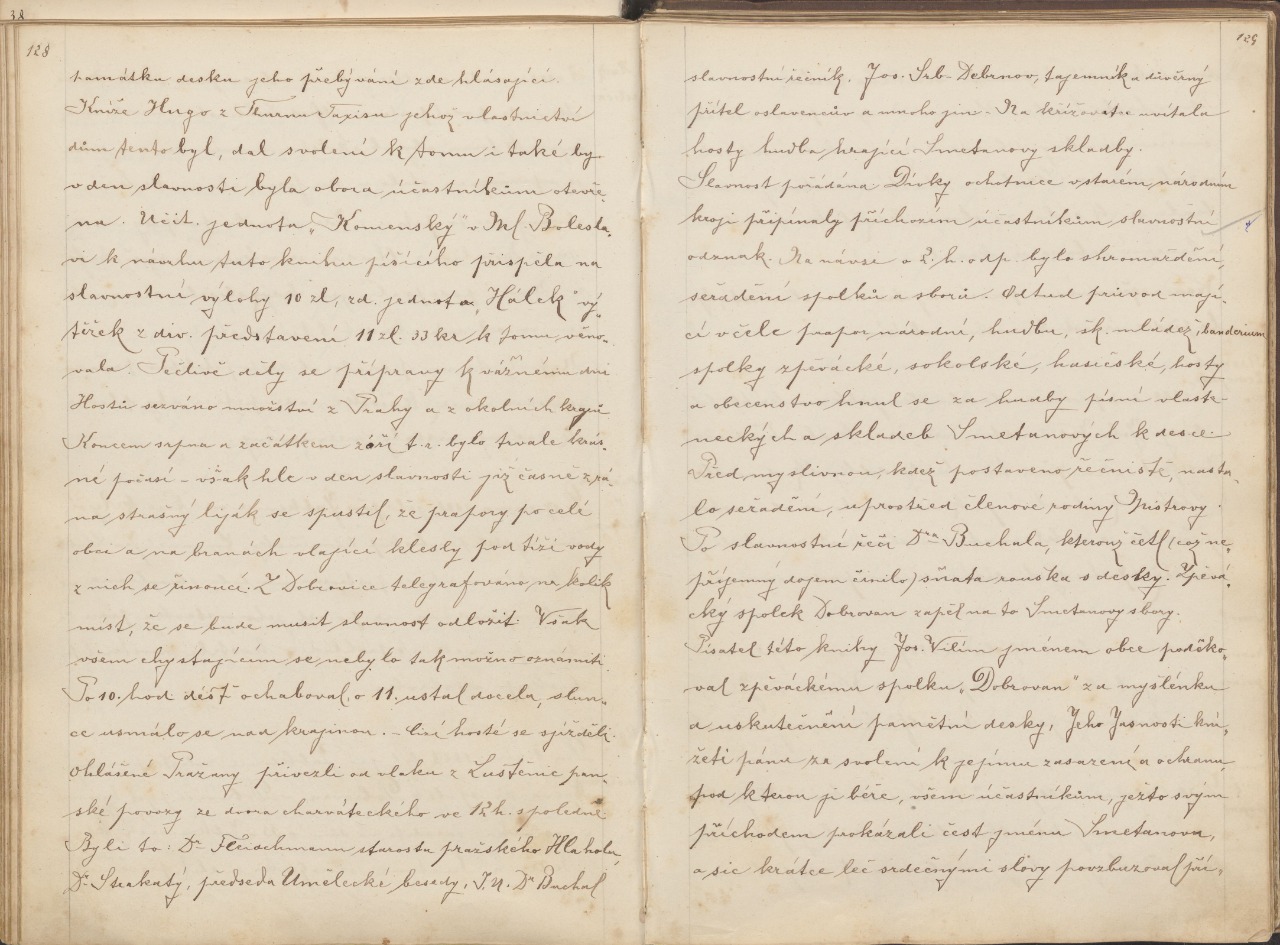 38
128
památku desku jeho přebývání zde hlásající.
Kníže Hugo z Thurnu Taxisu jehož vlastnictví
dům tento byl, dal svolení k tomu i také by
v den slavnosti byla obora účastníkům otevře-
na. Učit. jednota „Komenský" v Ml. Bolesla-
vi k návrhu tuto knihu píšícího přispěla na
slavnostní výlohy 10 zl, zd. jednota „Hálek" vý-
těžek z div. představení 11 zl. 33 kr k tomu věno-
vala. Pečlivě děly se přípravy k vážnému dni
Hostů sezváno množství z Prahy a z okolních krajů
Koncem srpna a začátkem září t.r. bylo trvale krás-
né počasí – však hle v den slavnosti již časně z rá-
na strašný liják se spustil, že prapory po celé
obci a na branách vlající klesly pod tíží vody
z nich se řinoucí. Z Dobrovice telegrafováno na kolik
míst, že se bude musit slavnost odložit. Však
všem chystajícím se nebylo tak možno oznámiti.
Po 10. hod déšť ochaboval, o 11. ustal docela, slun-
ce usmálo se nad krajinou. – Cizí hosté se sjížděli.
Ohlášené Pražany přivezli od vlaku z Luštěnic pan-
ské povozy ze dvora charváteckého ve 12 h. spoledne
Byli to: Dr Fleischmann starosta pražského Hlaholu,
Dr. Strakatý, předseda Umělecké besedy, J. N. Dr Buchal
129
slavnostní řečník, Jos. Srb-Debrnov, tajemník a důvěrný
přítel oslavencův a mnoho jin. Na křižovatce uvítala
hosty hudba hrající Smetanovy skladby.
Slavnost pořádána Dívky ochotnice v starém národním
kroji připínaly příchozím účastníkům slavnostní
odznak. Na návsi o 2. h. odp. bylo shromáždění,
seřadění spolků a sborů. Odtud průvod mají-
cí v čele prapor národní, hudbu, šk. mládež, banderium
spolky zpěvácké, sokolské, hasičské, hosty
a obecenstvo hnul se za hudby písní vlaste-
neckých a skladeb Smetanových k desce.
Před myslivnou, kdež postaveno řečniště, nasta-
lo seřadění, uprostřed členové rodiny Mistrovy.
Po slavnostní řeči Dra Buchala, kterouž četl (což ne-
příjemný dojem činilo) sňata rouška s desky. Zpěvá-
cký spolek Dobrovan zapěl na to Smetanovy sbory.
Pisatel této knihy Jos. Vilím jménem obce poděko-
val zpěváckému spolku „Dobrovan" za myšlénku
a uskutečnění pamětní desky, Jeho Jasnosti kní-
žeti pánu za svolení k jejímu zasazení a ochranu,
pod kterou ji béře, všem účastníkům, ježto svým
příchodem pokázali čest jménu Smetanovu,
a sic krátce leč srdečnými slovy povzbuzoval pří-